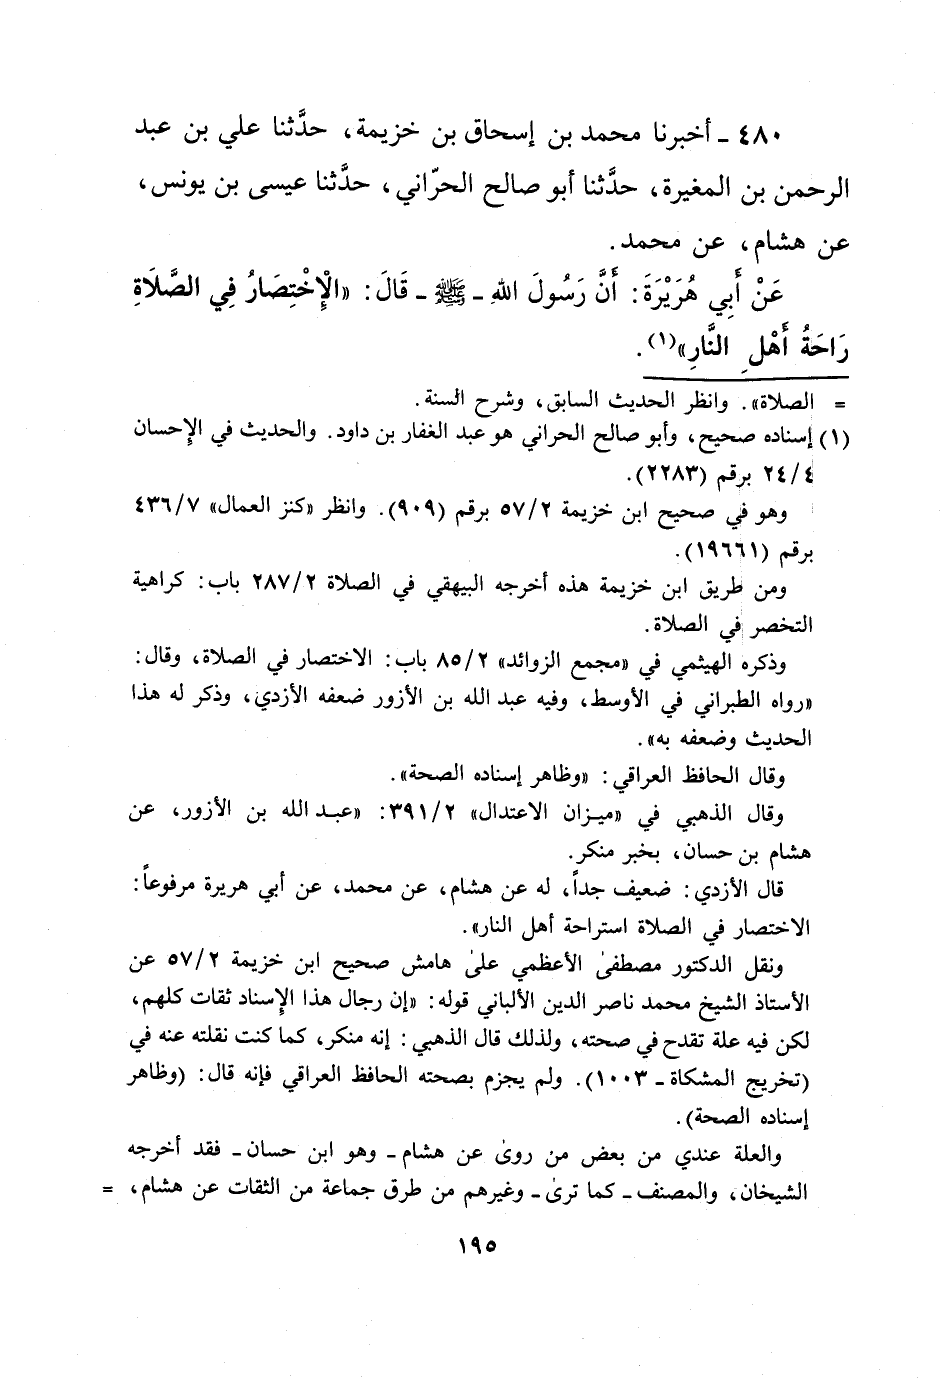 ٤٨٠ ـ أخبرنا محمد بن إسحاق بن خزيمة، حدَّثنا علي بن عبد
الرحمن بن المغيرة، حدَّثنا أبو صالح الحرّاني، حدَّثنا عيسى بن يونس،
عن هشام، عن محمد.
عَنْ أَبِي هُرَيْرَةَ: أَنَّ رَسُولَ اللهِ ـ ﷺ ـ قَالَ: «الْإِخْتِصَارُ فِي الصَّلَاةِ
رَاحَةُ أَهْلِ النَّارِ»(١).
= الصلاة». وانظر الحديث السابق، وشرح السنة.
(١) إسناده صحيح، وأبو صالح الحراني هو عبد الغفار بن داود. والحديث في الإحسان
٢٤/٤ برقم (٢٢٨٣).
وهو في صحيح ابن خزيمة ٥٧/٢ برقم (٩٠٩). وانظر «كنز العمال» ٤٣٦/٧
برقم (١٩٦٦١).
ومن طريق ابن خزيمة هذه أخرجه البيهقي في الصلاة ٢٨٧/٢ باب: كراهية
التخصر في الصلاة.
وذكره الهيثمي في «مجمع الزوائد» ٨٥/٢ باب: الاختصار في الصلاة، وقال:
«رواه الطبراني في الأوسط، وفيه عبد الله بن الأزور ضعفه الأزدي، وذكر له هذا
الحديث وضعفه به».
وقال الحافظ العراقي: «وظاهر إسناده الصحة».
وقال الذهبي في «ميزان الاعتدال» ٣٩١/٢: «عبد الله بن الأزور، عن
هشام بن حسان، بخبر منكر.
قال الأزدي: ضعيف جداً، له عن هشام، عن محمد، عن أبي هريرة مرفوعاً:
الاختصار في الصلاة استراحة أهل النار».
ونقل الدكتور مصطفىٰ الأعظمي علىٰ هامش صحيح ابن خزيمة ٥٧/٢ عن
الأستاذ الشيخ محمد ناصر الدين الألباني قوله: «إن رجال هذا الإسناد ثقات كلهم،
لكن فيه علة تقدح في صحته، ولذلك قال الذهبي: إنه منكر، كما كنت نقلته عنه في
(تخريج المشكاة ـ ١٠٠٣). ولم يجزم بصحته الحافظ العراقي فإنه قال: (وظاهر
إسناده الصحة).
والعلة عندي من بعض من روىٰ عن هشام ـ وهو ابن حسان ـ فقد أخرجه
الشيخان، والمصنف ـ كما ترىٰ ـ وغيرهم من طرق جماعة من الثقات عن هشام، =
١٩٥